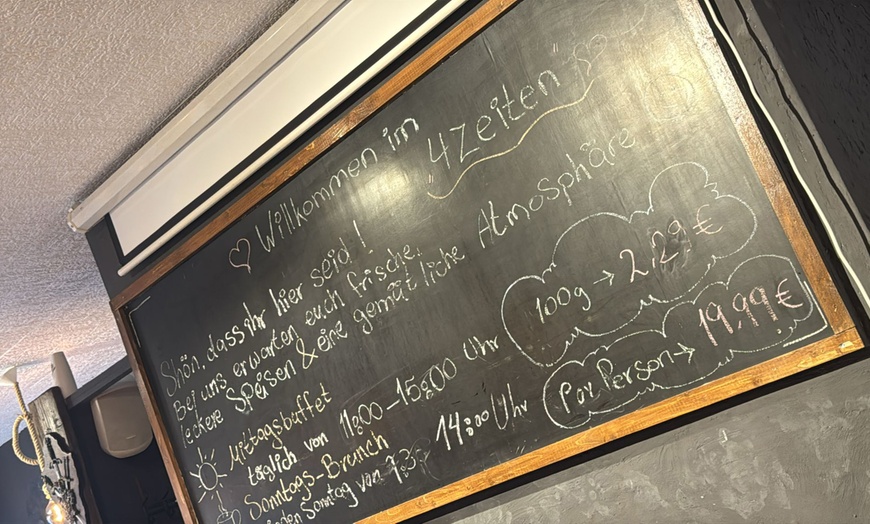 Willkommen im
"4Zeiten
Schön, dass ihr hier seid!
Bei uns erwarten euch frische,
leckere Speisen & eine gemütliche Atmosphäre
Mittagsbuffet
täglich von 11:00-15:00 Uhr
100g → 2,29 €
Sonntags-Brunch
jeden Sonntag von 14:00 Uhr
Por Person → 19,99 €